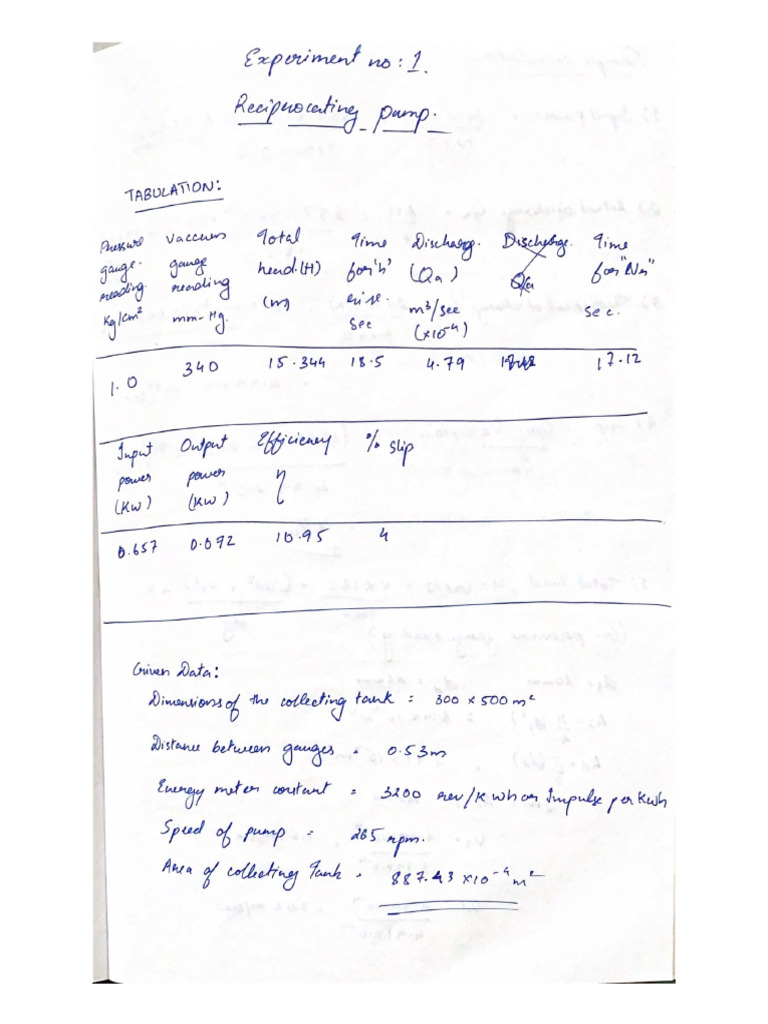 Experiment no: 1.
Reciprocating pump.
TABULATION:
Pressure gauge reading Kg/cm²
Vaccum gauge reading mm-Hg.
Total head (H) (m)
Time for 'h' rise sec
Discharge. (Qa) m³/sec (×10⁻⁴)
Discharge. Qa
Time for "Nr" sec.
1.0 340 15.344 18.5 4.79 17.12
Input power (Kw)
Output power (Kw)
Efficiency η
% slip
0.657 0.072 10.95 4
Given Data:
Dimensions of the collecting tank = 300 × 500 m²
Distance between gauges = 0.53m
Energy meter constant = 3200 rev/Kwh or Impulse per Kwh
Speed of pump = 265 rpm.
Area of collecting Tank = 887.43 ×10⁻⁴ m²